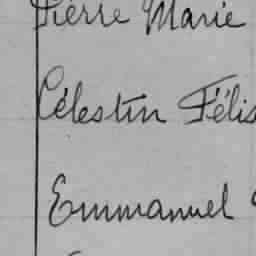 Pierre Marie
Célestin Félis
Emmanuel